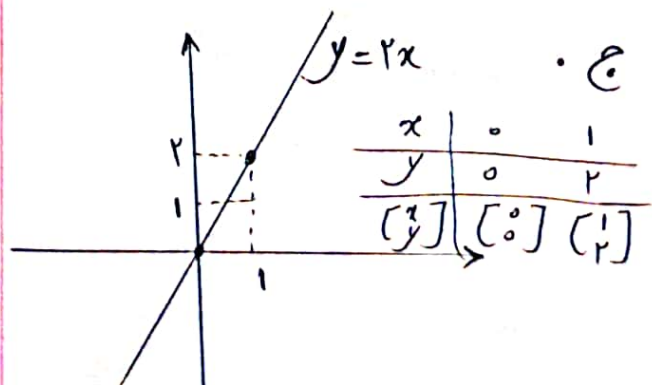 ج .
y=۲x
x ۰ ۱
y ۰ ۲
[x y] [۰ ۰] [۱ ۲]
۲
۱
۱